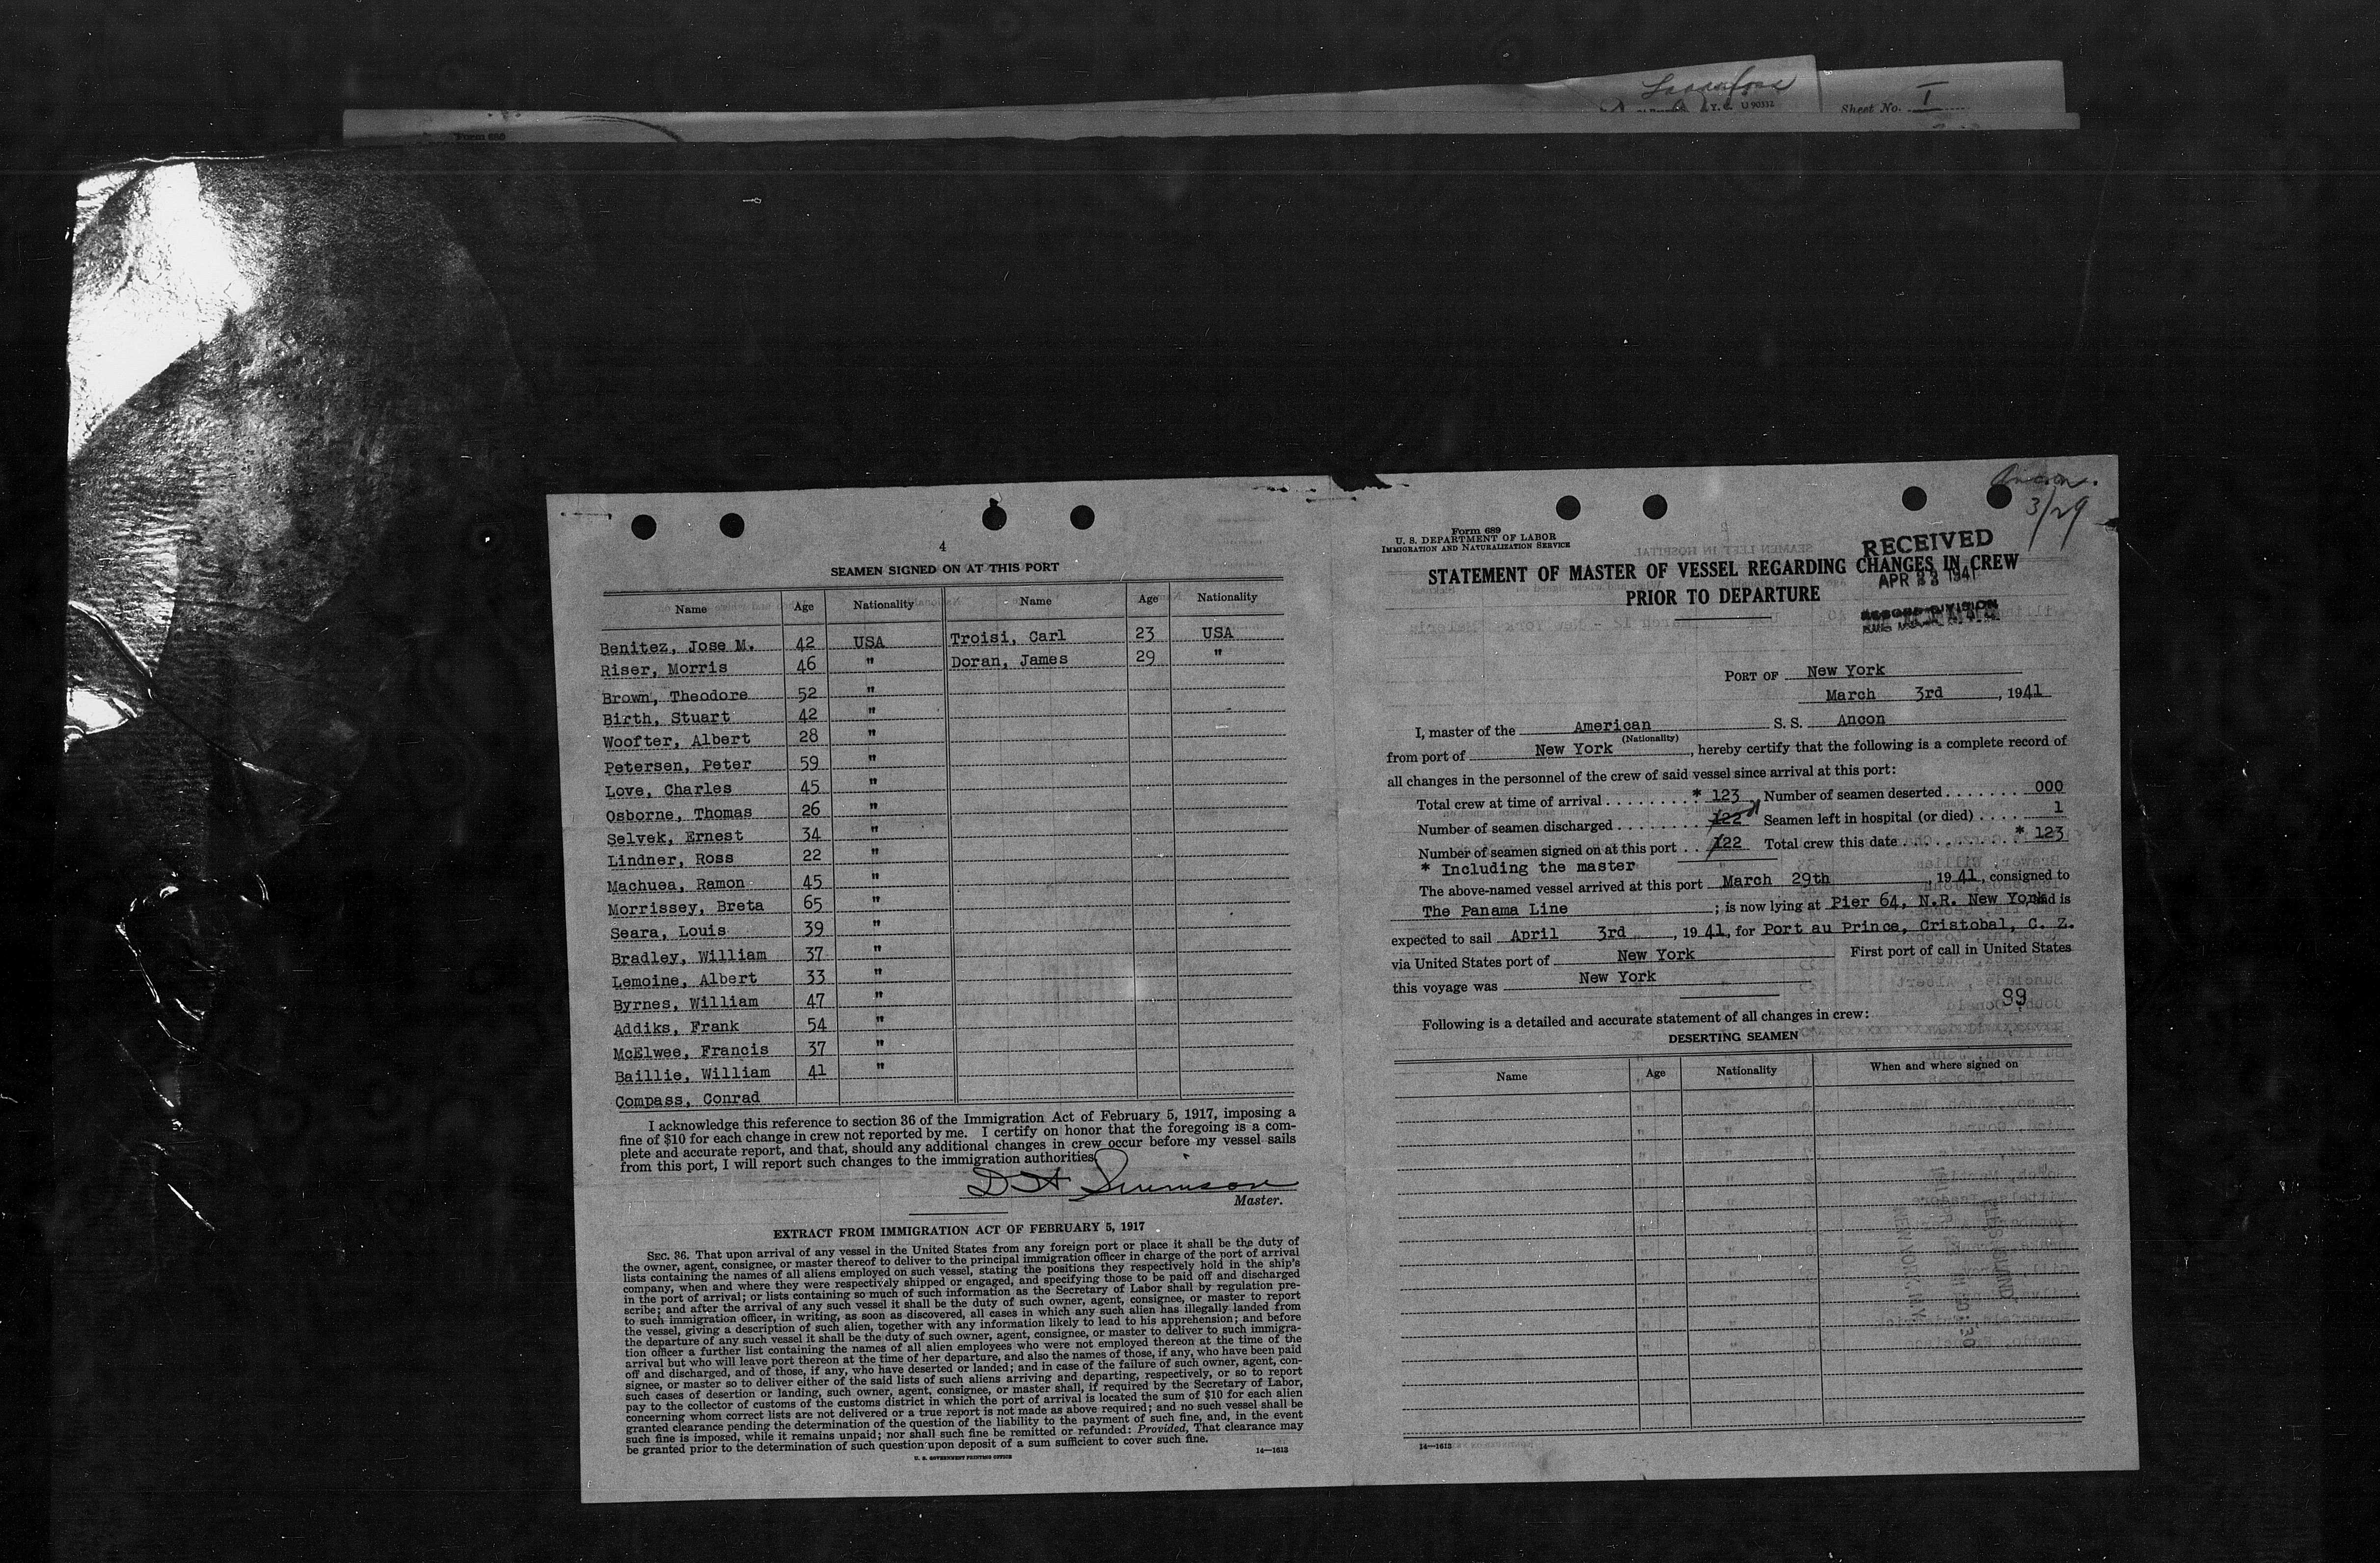 Y. C. U 90332
Sheet No. I
Form 689
4
SEAMEN SIGNED ON AT THIS PORT
Name Age Nationality Name Age Nationality
Benitez, Jose M. 42 USA Troisi, Carl 23 USA
Riser, Morris 46 " Doran, James 29 "
Brown, Theodore 52 "
Birth, Stuart 42 "
Woofter, Albert 28 "
Petersen, Peter 59 "
Love, Charles 45 "
Osborne, Thomas 26 "
Selvek, Ernest 34 "
Lindner, Ross 22 "
Machuea, Ramon 45 "
Morrissey, Breta 65 "
Seara, Louis 39 "
Bradley, William 37 "
Lemoine, Albert 33 "
Byrnes, William 47 "
Addiks, Frank 54 "
McElwee, Francis 37 "
Baillie, William 41 "
Compass, Conrad
I acknowledge this reference to section 36 of the Immigration Act of February 5, 1917, imposing a
fine of $10 for each change in crew not reported by me. I certify on honor that the foregoing is a com-
plete and accurate report, and that, should any additional changes in crew occur before my vessel sails
from this port, I will report such changes to the immigration authorities.
Master.
EXTRACT FROM IMMIGRATION ACT OF FEBRUARY 5, 1917
SEC. 36. That upon arrival of any vessel in the United States from any foreign port or place it shall be the duty of
the owner, agent, consignee, or master thereof to deliver to the principal immigration officer in charge of the port of arrival
lists containing the names of all aliens employed on such vessel, stating the positions they respectively hold in the ship's
company, when and where they were respectively shipped or engaged, and specifying those to be paid off and discharged
in the port of arrival; or lists containing so much of such information as the Secretary of Labor shall by regulation pre-
scribe; and after the arrival of any such vessel it shall be the duty of such owner, agent, consignee, or master to report
to such immigration officer, in writing, as soon as discovered, all cases in which any such alien has illegally landed from
the vessel, giving a description of such alien, together with any information likely to lead to his apprehension; and before
the departure of any such vessel it shall be the duty of such owner, agent, consignee, or master to deliver to such immigra-
tion officer a further list containing the names of all alien employees who were not employed thereon at the time of the
arrival but who will leave port thereon at the time of her departure, and also the names of those, if any, who have been paid
off and discharged, and of those, if any, who have deserted or landed; and in case of the failure of such owner, agent, con-
signee, or master so to deliver either of the said lists of such aliens arriving and departing, respectively, or so to report
such cases of desertion or landing, such owner, agent, consignee, or master shall, if required by the Secretary of Labor,
pay to the collector of customs of the customs district in which the port of arrival is located the sum of $10 for each alien
concerning whom correct lists are not delivered or a true report is not made as above required; and no such vessel shall be
granted clearance pending the determination of the question of the liability to the payment of such fine, and, in the event
such fine is imposed, while it remains unpaid; nor shall such fine be remitted or refunded: Provided, That clearance may
be granted prior to the determination of such question upon deposit of a sum sufficient to cover such fine.
U. S. GOVERNMENT PRINTING OFFICE 14—1613
Ancon.
3/29
Form 689
U. S. DEPARTMENT OF LABOR
IMMIGRATION AND NATURALIZATION SERVICE
RECEIVED
STATEMENT OF MASTER OF VESSEL REGARDING CHANGES IN CREW
APR 23 1941
PRIOR TO DEPARTURE
RECORD DIVISION
PORT OF New York
March 3rd, 1941
I, master of the American S. S. Ancon
(Nationality)
from port of New York, hereby certify that the following is a complete record of
all changes in the personnel of the crew of said vessel since arrival at this port:
Total crew at time of arrival . . . . . . . . * 123 Number of seamen deserted . . . . . . . 000
Number of seamen discharged . . . . . . . 122 Seamen left in hospital (or died) . . . . 1
Number of seamen signed on at this port . . 122 Total crew this date . . . . . . . . . * 123
* Including the master
The above-named vessel arrived at this port March 29th, 1941, consigned to
The Panama Line; is now lying at Pier 64, N.R. New York and is
expected to sail April 3rd, 1941, for Port au Prince, Cristobal, C. Z.
via United States port of New York First port of call in United States
this voyage was New York
99
Following is a detailed and accurate statement of all changes in crew:
DESERTING SEAMEN
Name Age Nationality When and where signed on
14—1613